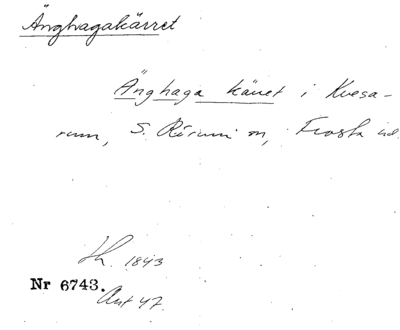 Änghagakärret
Änghaga kärret i Kvesa-
rum, S. Rörum sn, Frosta hd.
Lh. 1843
Nr 6743.
Ant 47.